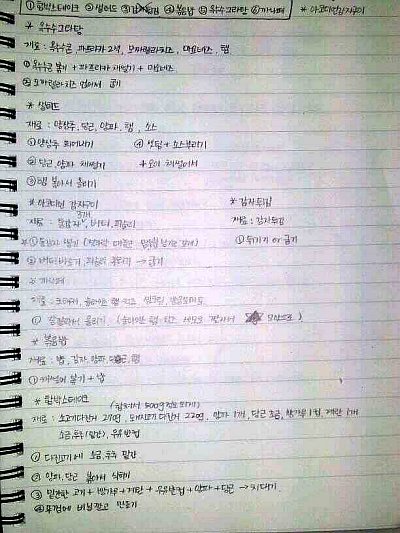 ①함박스테이크 ②샐러드 ④볶음밥 ⑤옥수수그라탕 ⑥카나페 *아코디언감자구이
* 옥수수그라탕
재료: 옥수수콘, 파프리카 2색, 모짜렐라치즈, 마요네즈, 햄
①옥수수콘 볶기 + 파프리카 채썰기 + 마요네즈
②모짜렐라치즈 얹어서 굽기
* 샐러드
재료: 양상추, 당근, 양파, 햄, 소스
①양상추 뜯어내기 ④ 셋팅 + 소스뿌리기
②당근, 양파 채썰기 + 오이 채썰어서
③햄 볶아서 올리기
* 아코디언 감자구이 * 감자튀김
3개
재료: 통감자, 버터, 파슬리 재료: 감자튀김
* ① 통감자 썰기 ①튀기기 or 굽기
② 버터 바르기, 파슬리 뿌리기 → 굽기
* 카나페
① 슬라이스 올리기
* 볶음밥
재료: 밥, 감자, 양파, 당근, 햄
① 채썰어 볶기 + 밥
* 함박스테이크 (합쳐서 500g정도 되게)
재료: 소고기다진거 270g, 돼지고기 다진거 220g, 양파 1개, 당근 조금, 빵가루 1컵, 계란 1개
소금, 후추(밑간), 우유반컵
① 다진고기에 소금, 후추 밑간
② 양파, 당근 볶아서 식히기
③ 밑간한 고기 + 빵가루 + 계란 + 우유반컵 + 양파 + 당근 → 치대기
④ 뚜껑에 비닐깔고 만들기